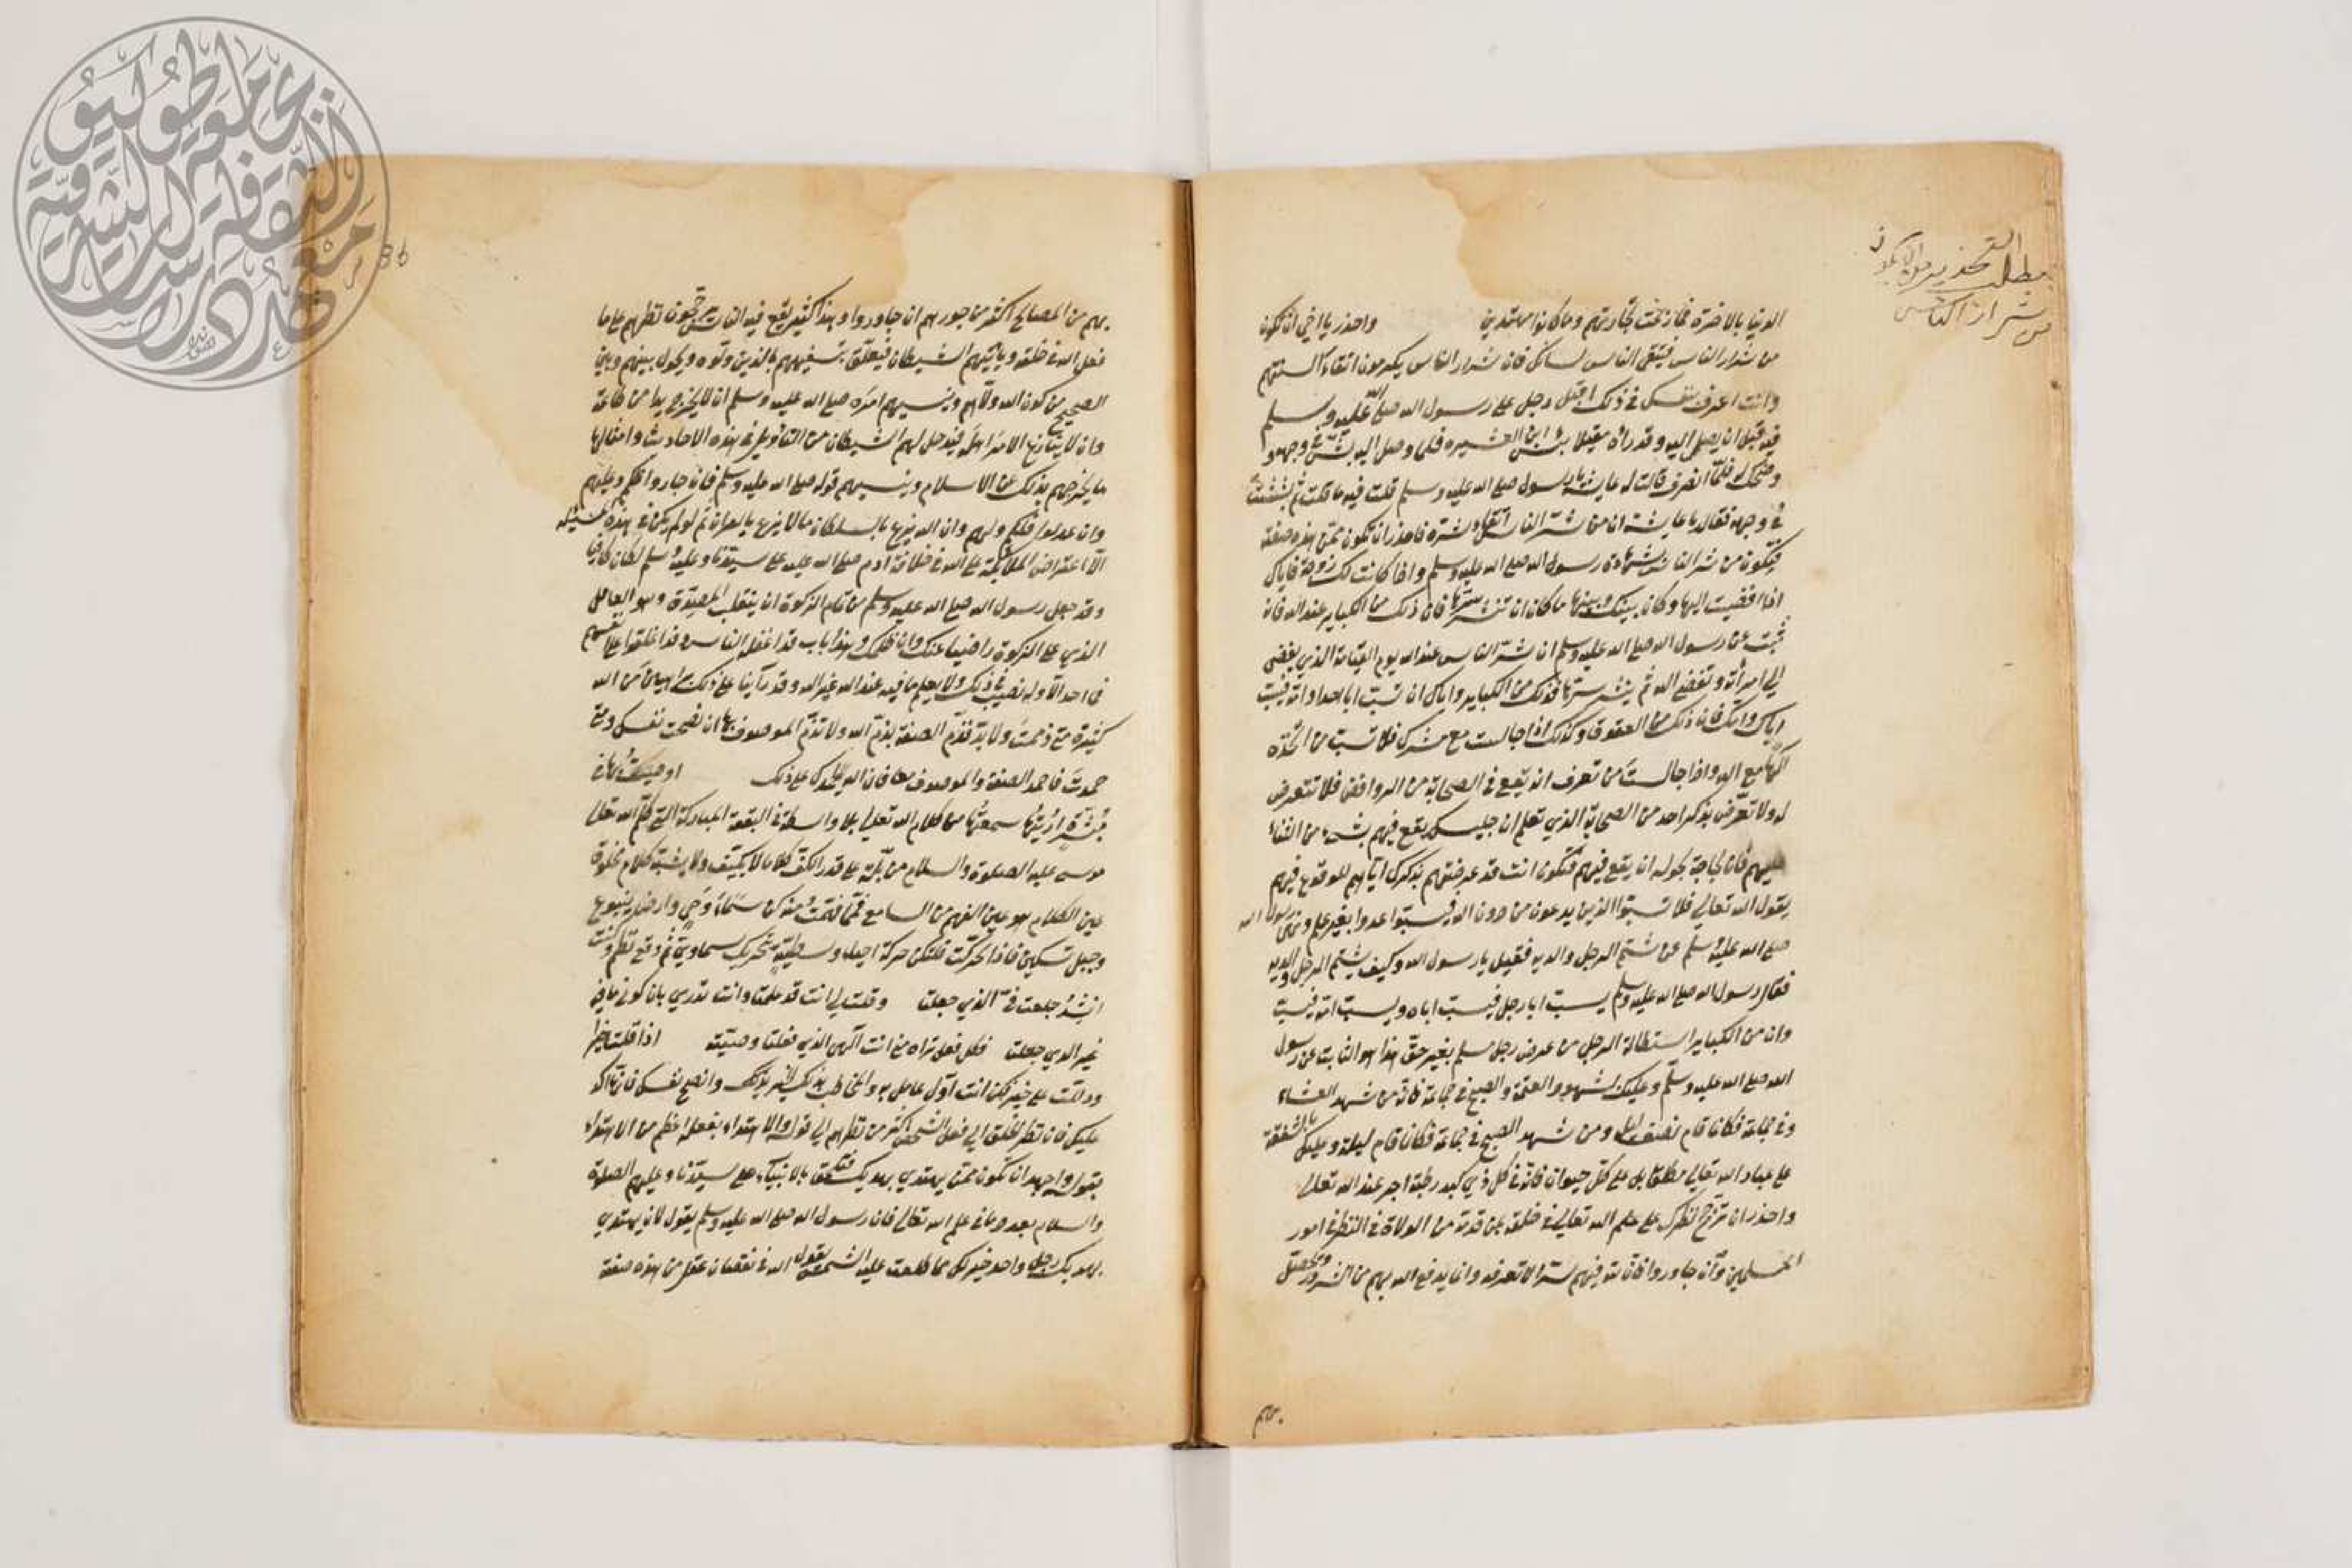 الدنيا بالاخرة فما ربحت تجارتهم وما كانوا مهتدين واحذر يا اخي ان تكون
من شرار الناس فيتقي الناس لسانك فان شرار الناس يكرمون اتقاء السنتهم
وانت اعرف بنفسك في ذلك اقبل رجل على رسول الله صلى الله عليه وسلم
فيه قبل ان يصل اليه وقد رآه مقبلا بئس ابن العشيره فلما وصل اليه بش في وجهه
وضحك له فلما انصرف قالت له عايشة يا رسول صلى الله عليه وسلم قلت فيه ما قلت ثم بششت
في وجهه فقال يا عايشة ان من شر الناس من اتقى لشره فاحذر ان تكون ممن هذه صفته
فتكون من شر الناس بشهادة رسول الله صلى الله عليه وسلم واذا كانت لك زوجة فاياك
اذا افضيت اليها وكان بينك وبينها ما كان ان تنشر سرها فان ذلك من الكباير عند الله فان
ثبت عن رسول الله صلى الله عليه وسلم ان شر الناس عند الله يوم القيامة الذي يفضي
الى امرأته وتفضي اليه ثم ينشر سرها فذلك من الكباير واياك ان تسب ابا احد او امه فيسب
اباك وامك فان ذلك من العقوق وكذلك اذا جالست مع مشرك فلا تسب من اتخذه
الها مع الله واذا جالست من تعرف انه يقع في الصحابة من الروافض فلا تتعرض
له ولا تعرض بذكر احد من الصحابة الذي تعلم ان جليسك يقع فيهم بشيء من الثناء
عليهم فان لجاجه تحوله ان يقع فيهم فتكون انت قد عرضتهم بذكرك اياهم للوقوع فيهم
يقول الله تعالى فلا تسبوا الذين يدعون من دون الله فيسبوا عدوا بغير علم ونهى رسول الله
صلى الله عليه وسلم عن شتم الرجل والديه فقيل يا رسول الله وكيف يشتم الرجل والديه
فقال رسول الله صلى الله عليه وسلم يسب ابا رجل فيسب اباه ويسب امه فيسب
وان من الكباير استطالة الرجل من عرض رجل مسلم بغير حق هذا هو الثابت عن رسول
الله صلى الله عليه وسلم وعليك بشهود العتمة والصبح في جماعة فانه من شهد العشاء
في جماعة فكانما قام نصف ليله ومن شهد الصبح في جماعة فكانما قام ليلة وعليك بالشفقة
على عباد الله تعالى مطلقا بل على كل حيوان فانه في كل ذي كبد رطبة اجر عند الله تعالى
واحذر ان ترجح نظرك على علم الله تعالى في خلقه عن قدمه من الولاة في النظر في امور
المسلمين وان جاوروا فان لله فيهم سرا لا تعرفه وانما يدفع الله بهم من الشرور وتحصل
بهم
مطلب التحذير من ان يكون
من شرار الناس
36
بهم من المصالح اكثر من جورهم ان جاوروا وهذا كثير يقع فيه الناس يرجحون نظرهم على ما
فعل الله في خلقه ويأتيهم الشيطان فيعلق بسفيههم بالذين ولوه ويحول بينهم وبين
الصحيح من كون الله ولاهم وينسيهم امره صلى الله عليه وسلم ان لا يخرج يدا من طاعة
وان لا ينازع الامر اهله فيدخل لهم الشيطان من التأويل في هذه الاحاديث وامثالها
ما يخرجهم بذلك عن الاسلام وينسيهم قوله صلى الله عليه وسلم فان جاروا فلكم وعليهم
وان عدلوا فلكم ولهم وان الله ينزع بالسلطان مالا ينزع بالقران ثم لو لم يكن في هذه
الا اعتراض الملائكة على الله في خلافة ادم صلى الله عليه على سيدنا وعليه وسلم لكان كافيا
وقد جعل رسول الله صلى الله عليه وسلم من تمام الزكوة ان ينقلب المصدق وهو العامل
الذي على الزكوة راضيا عنك وان ظلمك وهذا باب قد اغفله الناس وقد اغلقوا على انفسهم
فما احد الا وله نصيب في ذلك ولا يعلم ما فيه عند الله غير الله وقد رأينا على ذلك براهين من الله
كثيرة متى ذممت ولا بد فذم الصفة بذم الله ولا تذم الموصوف بها ان نصحت نفسك ومتى
حمدت فاحمد الصفة والموصوف معا فان الله يحمدك على ذلك اوصيت بها في
مبشرة اريتها سمعتها من كلام الله تعالى بلا واسطة في البقعة المباركة التي كلم الله تعالى
موسى عليه الصلوة والسلام من بلة على قدر الكف كلاما لا يكيف ولا يشبه كلام مخلوق
عين الكلام هو عين الفهم من السامع فما فهمت منه كن سماء وحي وارض ينبوع
وجبل تسكين فاذا تحركت فلتكن حركة احياء وسطية بتحريك سماوي ثم وقع نظم وكنت
انشد جعلت في الذي جعلتا وقلت لي انت قد علمتا وانت تدري بان كوني ما فيه
غير الذي جعلتا فكل فعل تراه مني انت الهي الذي فعلتا وصية اذا قلت خيرا
ودللت على خير فكن انت اول عامل به والمخاطب بذلك الخير بذلك وانصح نفسك فانها آكد
عليك فان نظر الخلق الى فعل الشخص اكثر من نظرهم الى قوله والاهتداء بفعله اعظم من الاهتداء
بقوله واجهد ان تكون ممن يهتدي بهديك فتلحق بالانبياء على سيدنا وعليهم الصلوة
والسلام بعد وفاتي علم الله تعالى فان رسول الله صلى الله عليه وسلم يقول لان يهتدي
بهديك رجل واحد خير لك مما طلعت عليه الشمس يقول الله في نقصان عقل من هذه صفته